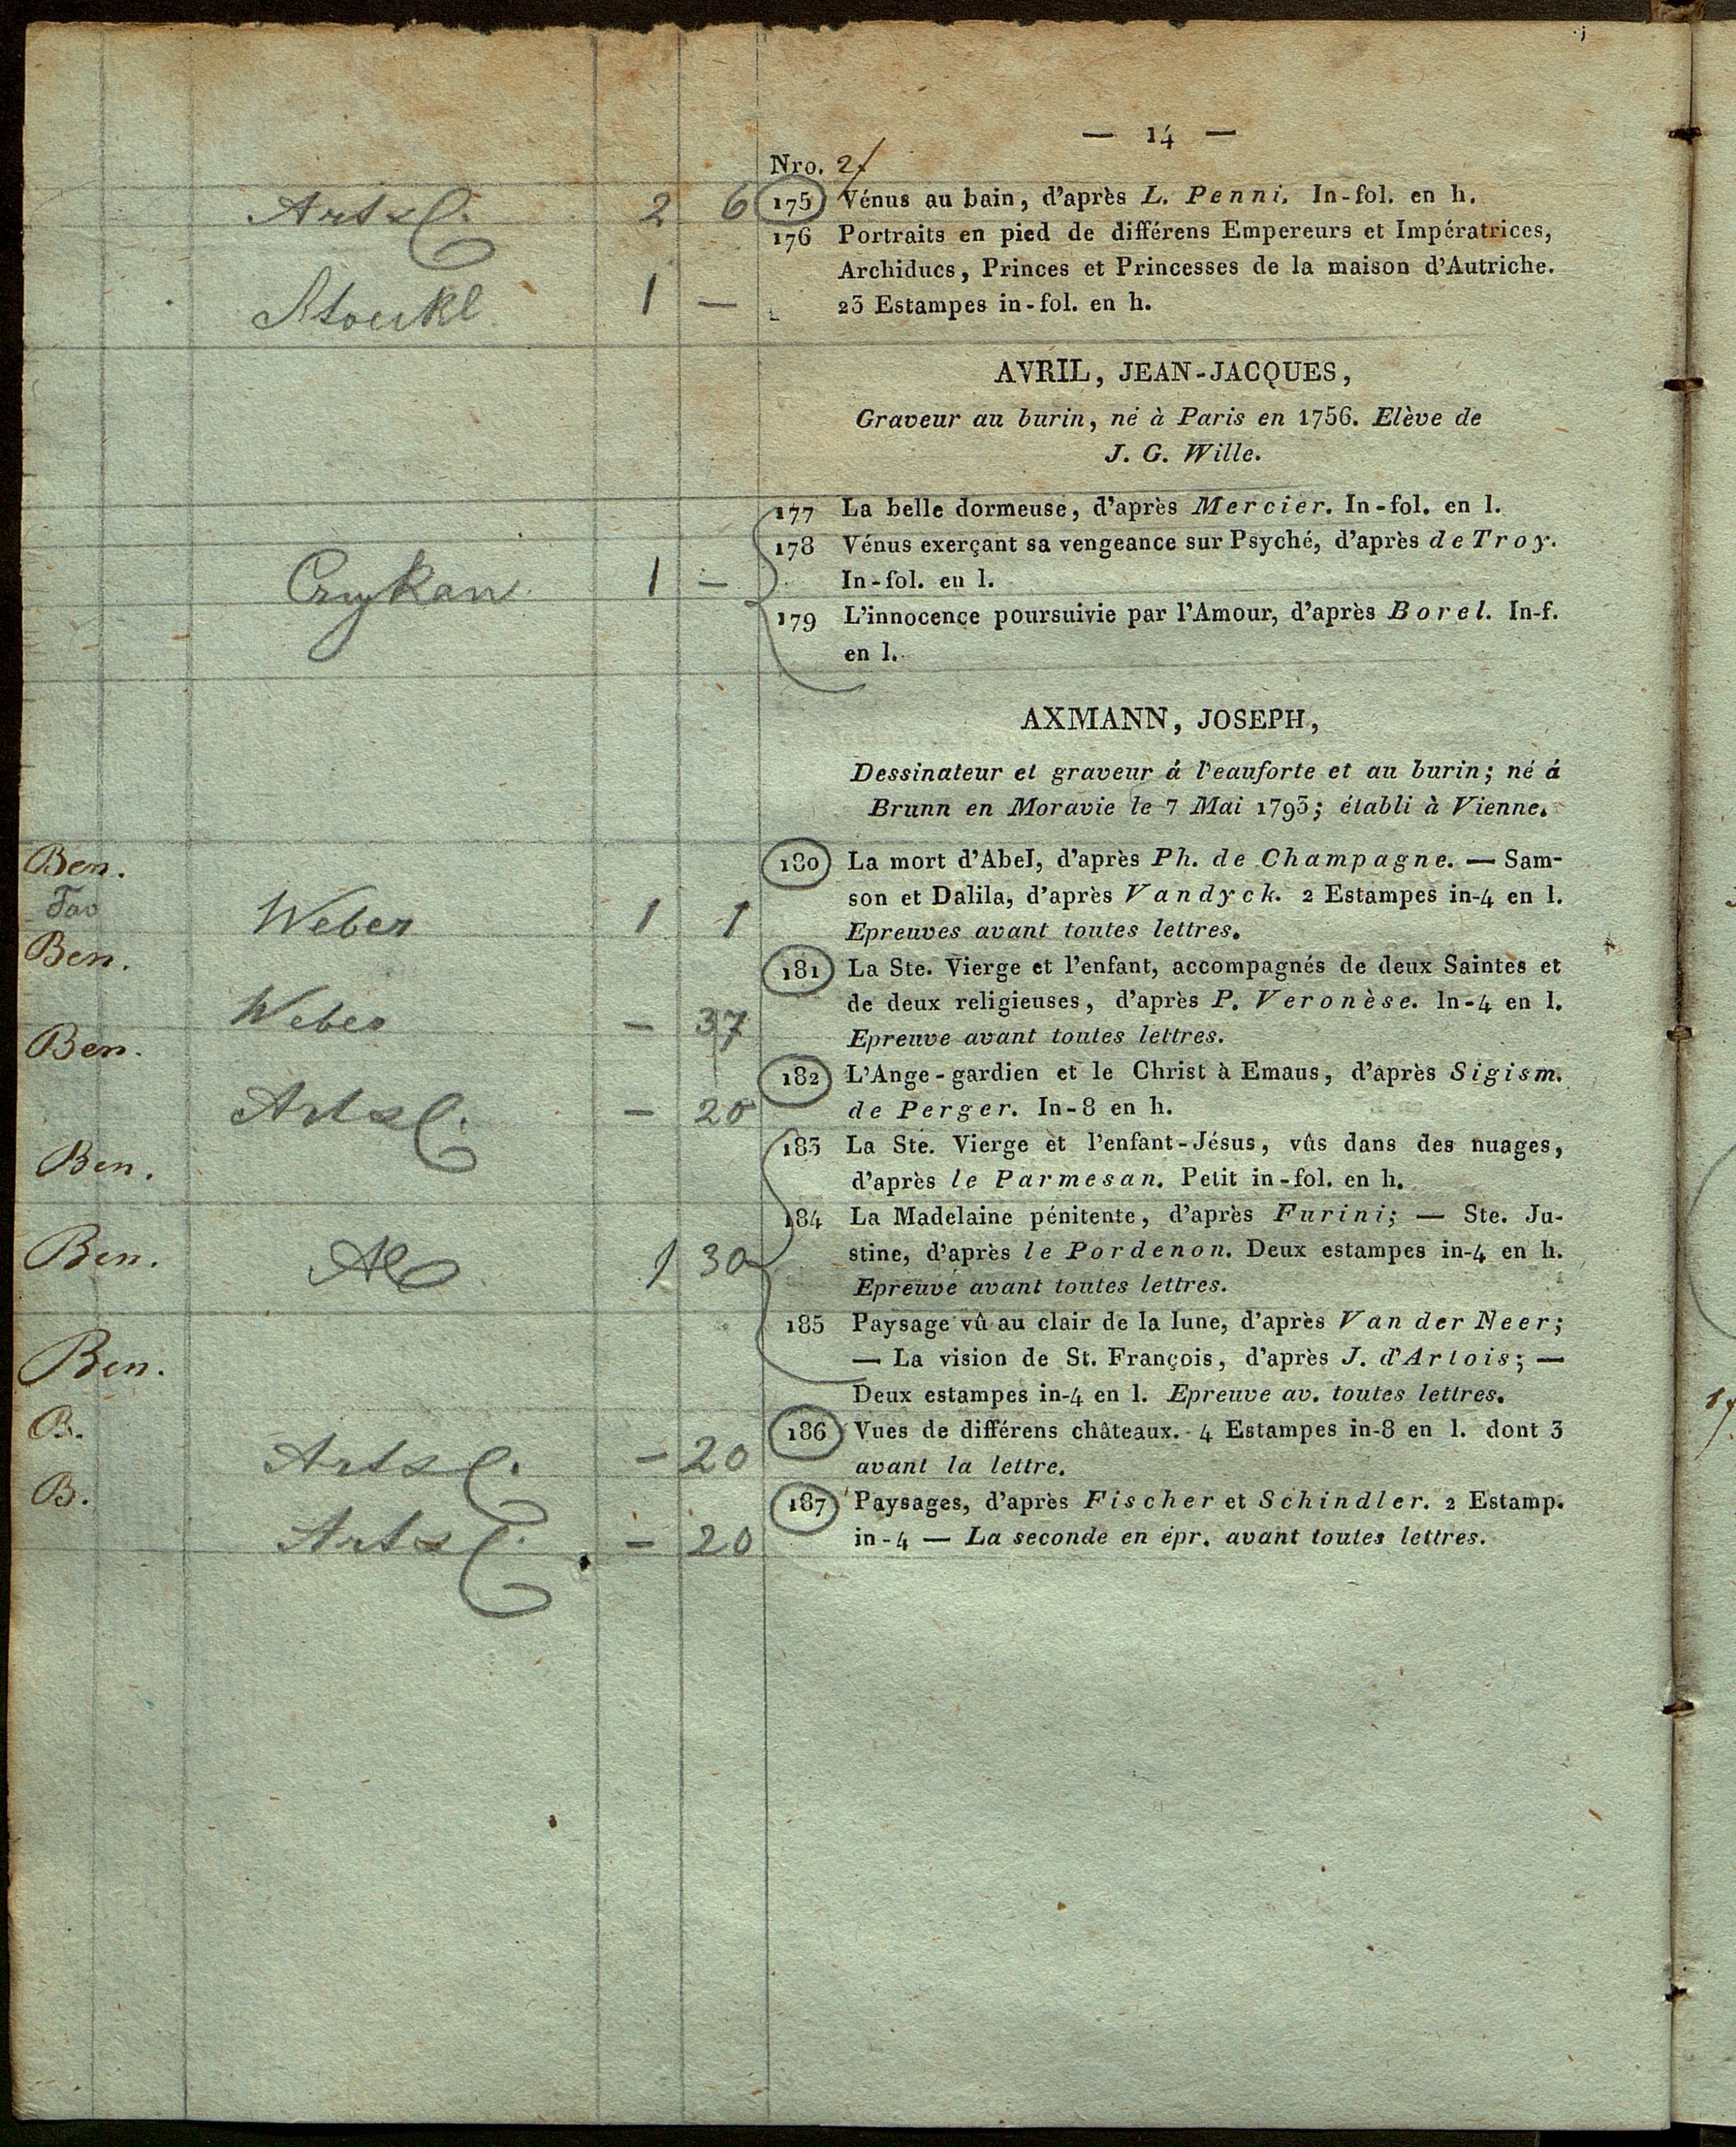 — 14 —
Nro. 2
Artzl. 2 6 175 Vénus au bain, d'après L. Penni. In-fol. en h.
176 Portraits en pied de différens Empereurs et Impératrices,
Archiducs, Princes et Princesses de la maison d'Autriche.
Stoeckl 1 — 23 Estampes in-fol. en h.
AVRIL, JEAN-JACQUES,
Graveur au burin, né à Paris en 1756. Elève de
J. G. Wille.
177 La belle dormeuse, d'après Mercier. In-fol. en l.
178 Vénus exerçant sa vengeance sur Psyché, d'après de Troy.
1 — In-fol. en l.
179 L'innocence poursuivie par l'Amour, d'après Borel. In-f.
en l.
AXMANN, JOSEPH,
Dessinateur et graveur á l'eauforte et au burin; né á
Brunn en Moravie le 7 Mai 1793; établi à Vienne.
Ben. 180 La mort d'Abel, d'après Ph. de Champagne. — Sam-
Weber 1 1 son et Dalila, d'après Vandyck. 2 Estampes in-4 en l.
Epreuves avant toutes lettres.
Ben. 181 La Ste. Vierge et l'enfant, accompagnés de deux Saintes et
Weber — 37 de deux religieuses, d'après P. Veronèse. In-4 en l.
Epreuve avant toutes lettres.
Ben. 182 L'Ange-gardien et le Christ à Emaus, d'après Sigism.
Artzl. — 20 de Perger. In-8 en h.
Ben. 183 La Ste. Vierge et l'enfant-Jésus, vûs dans des nuages,
d'après le Parmesan. Petit in-fol. en h.
Ben. 184 La Madelaine pénitente, d'après Furini; — Ste. Ju-
1 30 stine, d'après le Pordenon. Deux estampes in-4 en h.
Epreuve avant toutes lettres.
Ben. 185 Paysage vû au clair de la lune, d'après Van der Neer;
— La vision de St. François, d'après J. d'Artois; —
Deux estampes in-4 en l. Epreuve av. toutes lettres.
B. 186 Vues de différens châteaux. 4 Estampes in-8 en l. dont 3
Artzl. — 20 avant la lettre.
B. 187 Paysages, d'après Fischer et Schindler. 2 Estamp.
Artzl. — 20 in-4 — La seconde en épr. avant toutes lettres.